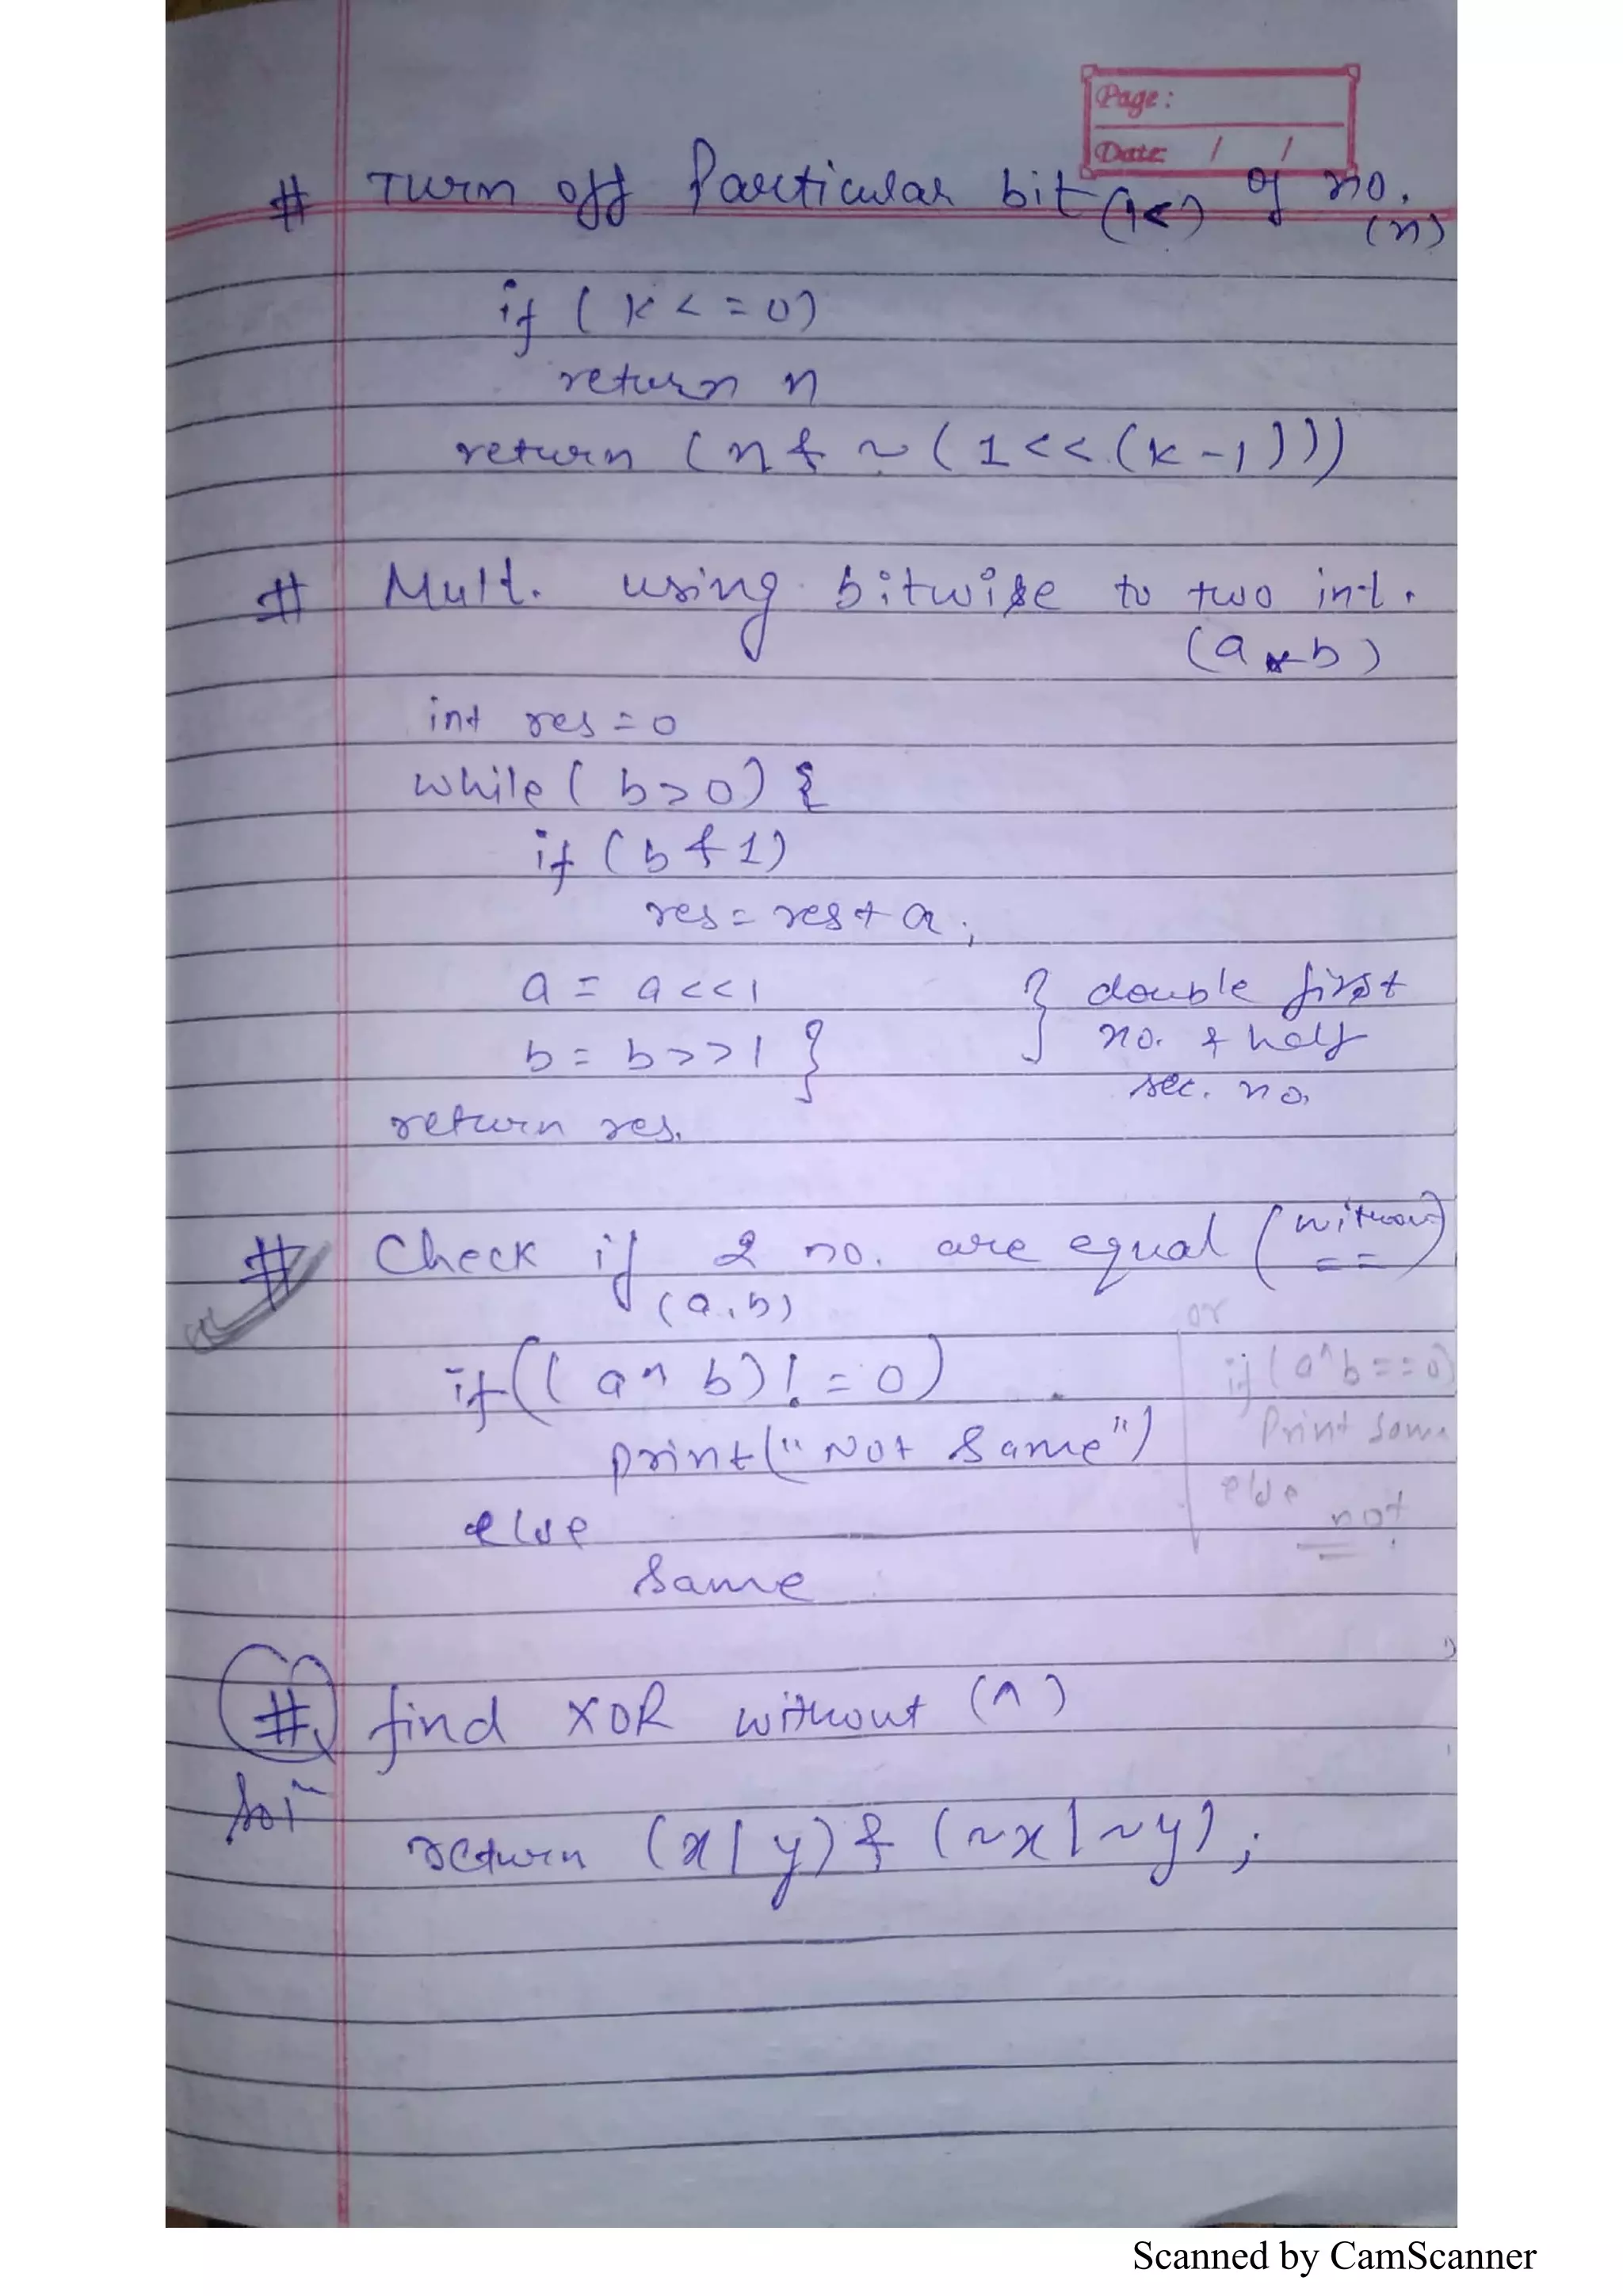 Page:
Date: / /
# Turn off Particular bit (k) of no. (n)
if (k <= 0)
return n
return (n & ~(1<<(k-1)))
# Mult. using bitwise to two int.
(a * b)
int res = 0
while (b>0) {
if (b & 1)
res = res + a;
a = a<<1
b = b>>1 }
} double first
no. & half
sec. no.
return res.
# Check if 2 no. are equal (without ==)
(a, b)
if ((a ^ b) != 0)
print("Not Same")
else
Same
or
if (a^b==0)
Print Same
else
not
# find XOR without (^)
Sol
return (x | y) & (~x | ~y);
Scanned by CamScanner